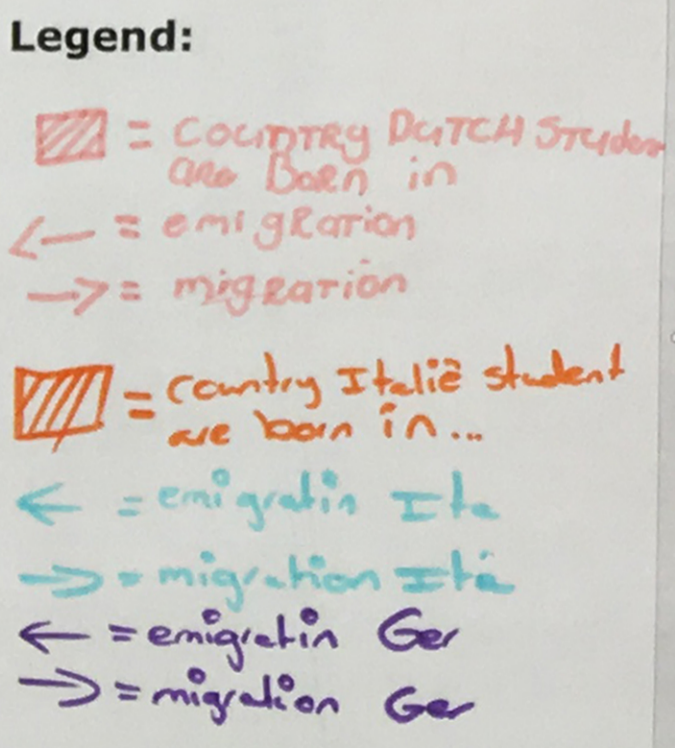 Legend:
= COUNTRY DUTCH Studen
are Born in
= emigration
= migration
= country Italië student
are born in...
= emigratin Ita
= migration Ita
= emigratin Ger
= migration Ger